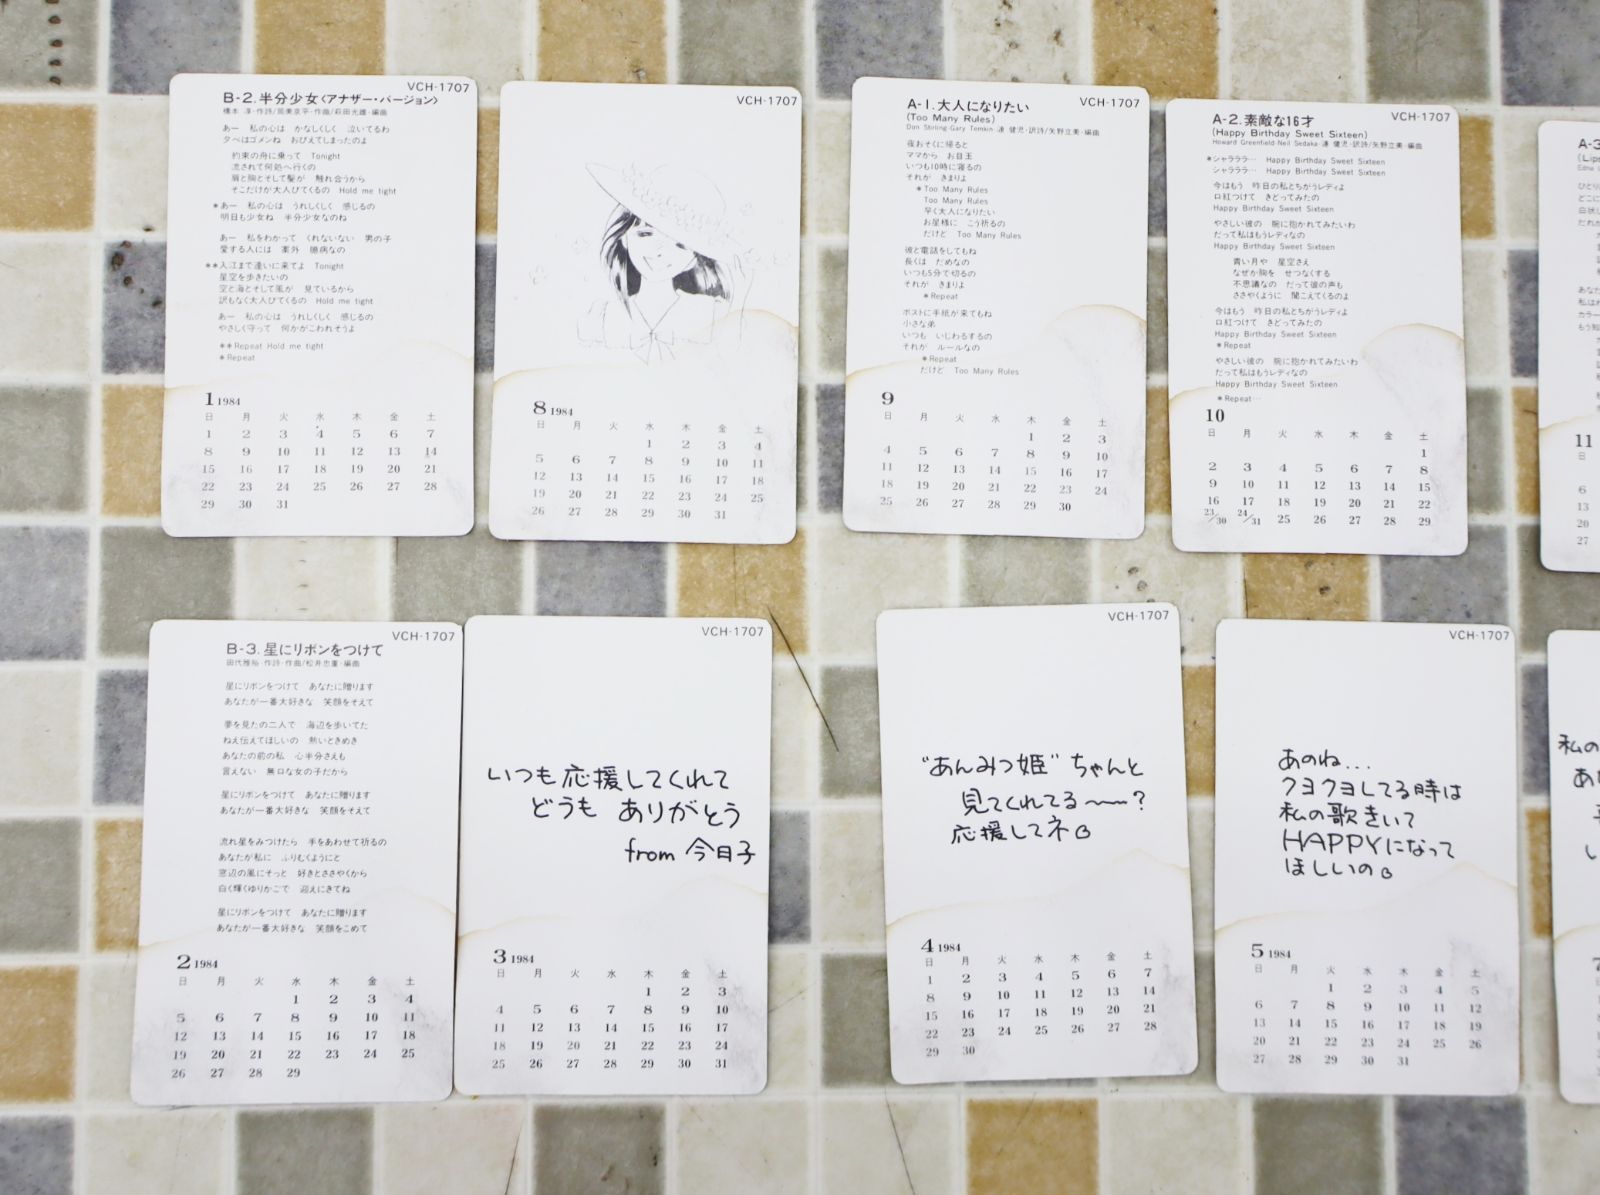 VCH-1707
B-2.半分少女〈アナザー・バージョン〉
橋本 淳・作詩/筒美京平・作曲/萩田光雄・編曲
あー 私の心は かなしくしく 泣いてるわ
夕べはゴメンね おびえてしまったのよ
約束の舟に乗って Tonight
流されて何処へ行くの
肩と胸とそして髪が 触れ合うから
そこだけが大人びてくるの Hold me tight
*あー 私の心は うれしくしく 感じるの
明日も少女ね 半分少女なのね
あー 私をわかって くれないない 男の子
愛する人には 案外 臆病なの
**入江まで逢いに来てよ Tonight
星空を歩きたいの
空と海とそして風が 見ているから
訳もなく大人びてくるの Hold me tight
あー 私の心は うれしくしく 感じるの
やさしく守って 何かがこわれそうよ
**Repeat Hold me tight
*Repeat
1 1984
日 月 火 水 木 金 土
1 2 3 4 5 6 7
8 9 10 11 12 13 14
15 16 17 18 19 20 21
22 23 24 25 26 27 28
29 30 31
VCH-1707
8 1984
日 月 火 水 木 金 土
1 2 3 4
5 6 7 8 9 10 11
12 13 14 15 16 17 18
19 20 21 22 23 24 25
26 27 28 29 30 31
VCH-1707
A-1.大人になりたい
(Too Many Rules)
Don Stirling-Gary Temkin 漣 健児・訳詩/矢野立美・編曲
夜おそくに帰ると
ママから お目玉
いつも10時に寝るの
それが きまりよ
*Too Many Rules
Too Many Rules
早く大人になりたい
お星様に こう祈るの
だけど Too Many Rules
彼と電話をしてもね
長くは だめなの
いつも5分で切るの
それが きまりよ
*Repeat
ポストに手紙が来てもね
小さな弟
いつも いじわるするの
それが ルールなの
*Repeat
だけど Too Many Rules
9
日 月 火 水 木 金 土
1 2 3
4 5 6 7 8 9 10
11 12 13 14 15 16 17
18 19 20 21 22 23 24
25 26 27 28 29 30
VCH-1707
A-2.素敵な16才
(Happy Birthday Sweet Sixteen)
Howard Greenfield-Neil Sedaka・漣 健児・訳詩/矢野立美・編曲
*シャラララ… Happy Birthday Sweet Sixteen
シャラララ… Happy Birthday Sweet Sixteen
今はもう 昨日の私とちがうレディよ
口紅つけて きどってみたの
Happy Birthday Sweet Sixteen
やさしい彼の 腕に抱かれてみたいわ
だって私はもうレディなの
Happy Birthday Sweet Sixteen
青い月や 星空さえ
なぜか胸を せつなくする
不思議なの だって彼の声も
ささやくように 聞こえてくるのよ
今はもう 昨日の私とちがうレディよ
口紅つけて きどってみたの
Happy Birthday Sweet Sixteen
*Repeat
やさしい彼の 腕に抱かれてみたいわ
だって私はもうレディなの
Happy Birthday Sweet Sixteen
*Repeat…
10
日 月 火 水 木 金 土
1
2 3 4 5 6 7 8
9 10 11 12 13 14 15
16 17 18 19 20 21 22
23/30 24/31 25 26 27 28 29
A-3
(Lips
11
日
6
13
20
27
VCH-1707
B-3.星にリボンをつけて
田代雅裕・作詩・作曲/松井忠重・編曲
星にリボンをつけて あなたに贈ります
あなたが一番大好きな 笑顔をそえて
夢を見たの二人で 海辺を歩いてた
ねえ伝えてほしいの 熱いときめき
あなたの前の私 心半分さえも
言えない 無口な女の子だから
星にリボンをつけて あなたに贈ります
あなたが一番大好きな 笑顔をそえて
流れ星をみつけたら 手をあわせて祈るの
あなたが私に ふりむくようにと
窓辺の風にそっと 好きとささやくから
白く輝くゆりかごで 迎えにきてね
星にリボンをつけて あなたに贈ります
あなたが一番大好きな 笑顔をこめて
2 1984
日 月 火 水 木 金 土
1 2 3 4
5 6 7 8 9 10 11
12 13 14 15 16 17 18
19 20 21 22 23 24 25
26 27 28 29
VCH-1707
いつも応援してくれて
どうも ありがとう
from 今日子
3 1984
日 月 火 水 木 金 土
1 2 3
4 5 6 7 8 9 10
11 12 13 14 15 16 17
18 19 20 21 22 23 24
25 26 27 28 29 30 31
VCH-1707
"あんみつ姫" ちゃんと
見てくれてる〜〜?
応援してネ。
4 1984
日 月 火 水 木 金 土
1 2 3 4 5 6 7
8 9 10 11 12 13 14
15 16 17 18 19 20 21
22 23 24 25 26 27 28
29 30
VCH-1707
あのね...
クヨクヨしてる時は
私の歌きいて
HAPPYになって
ほしいの。
5 1984
日 月 火 水 木 金 土
1 2 3 4 5
6 7 8 9 10 11 12
13 14 15 16 17 18 19
20 21 22 23 24 25 26
27 28 29 30 31
私の
あ
い
7